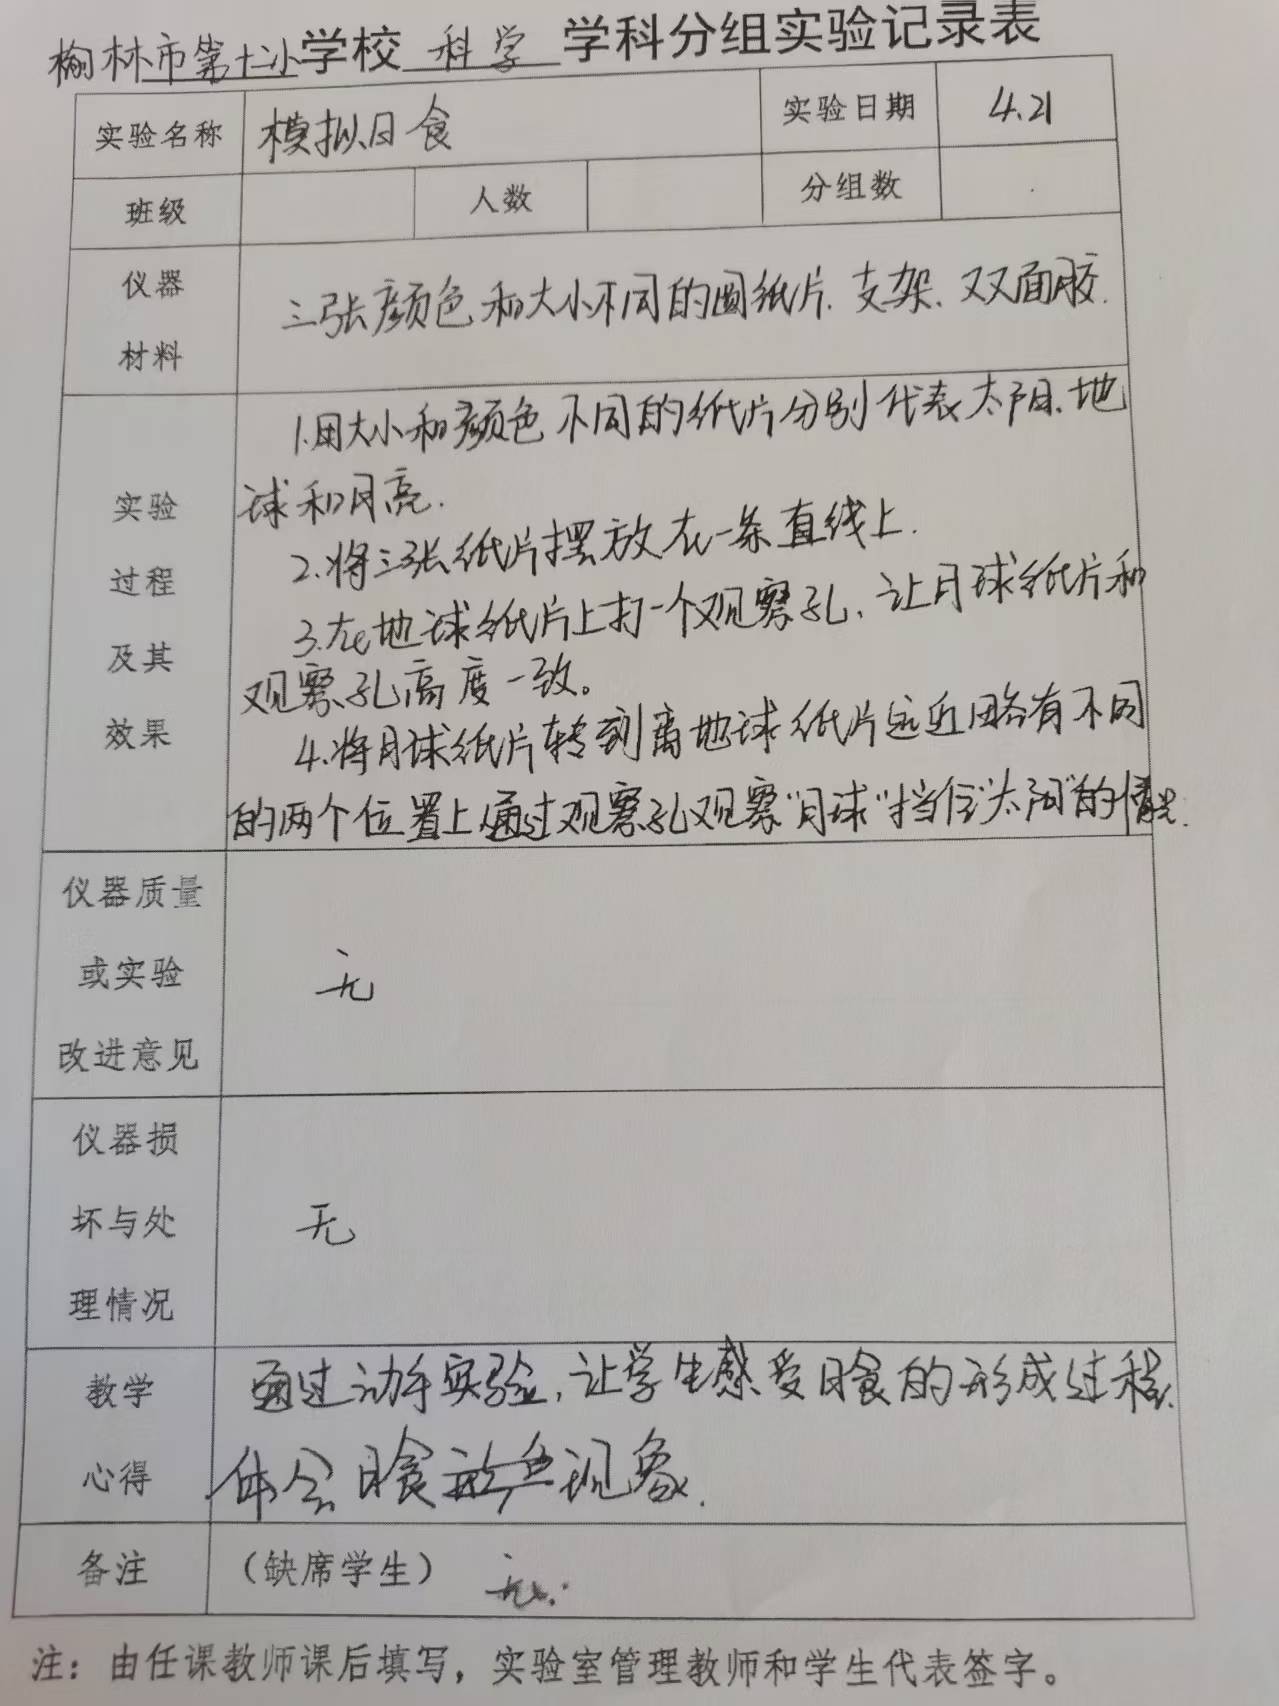 榆林市第十二小学校 科学 学科分组实验记录表
实验名称 模拟日食 实验日期 4.21
班级 人数 分组数
仪器
材料
三张颜色和大小不同的圆纸片、支架、双面胶.
实验
过程
及其
效果
1.用大小和颜色不同的纸片分别代表太阳、地
球和月亮.
2.将三张纸片摆放在一条直线上.
3.在地球纸片上打一个观察孔,让月球纸片和
观察孔高度一致。
4.将月球纸片转到离地球纸片远近略有不同
的两个位置上,通过观察孔观察"月球"挡住"太阳"的情况.
仪器质量
或实验
改进意见
无
仪器损
坏与处
理情况
无
教学
心得
通过动手实验,让学生感受日食的形成过程,
体会日食现象.
备注 (缺席学生) 无.
注：由任课教师课后填写，实验室管理教师和学生代表签字。